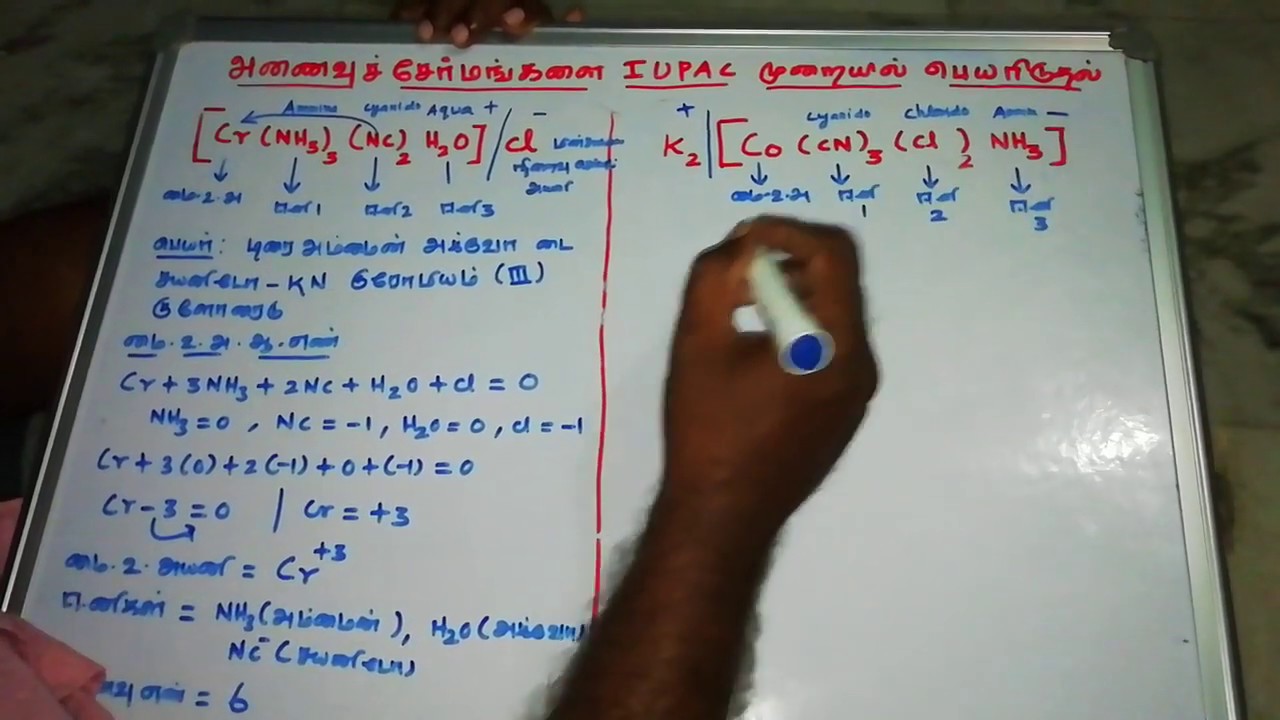 அணைவுச் சேர்மங்களை IUPAC முறையில் பெயரிடுதல்
Ammine cyanido Aqua + −
[Cr (NH3)3 (NC)2 H2O] / Cl
மை.உ.அ ஈனி1 ஈனி2 ஈனி3
பெயர் : டிரை அம்மைன் அக்வா டை
சயனிடோ - KN குரோமியம் (III)
குளோரைடு
மை.உ.அ.ஆ.எண்
Cr + 3NH3 + 2NC + H2O + Cl = 0
NH3 = 0 , NC = -1 , H2O = 0 , Cl = -1
Cr + 3(0) + 2(-1) + 0 + (-1) = 0
Cr - 3 = 0 | Cr = +3
மை.உ.அயனி = Cr+3
ஈனிகள் = NH3 (அம்மைன்), H2O (அக்வா)
NC− (சயனிடோ)
எண் = 6
+ cyanido chlorido −
K2 | [Co (CN)3 (Cl)2 NH3]
மை.உ.அ ஈனி 1 ஈனி 2 ஈனி 3